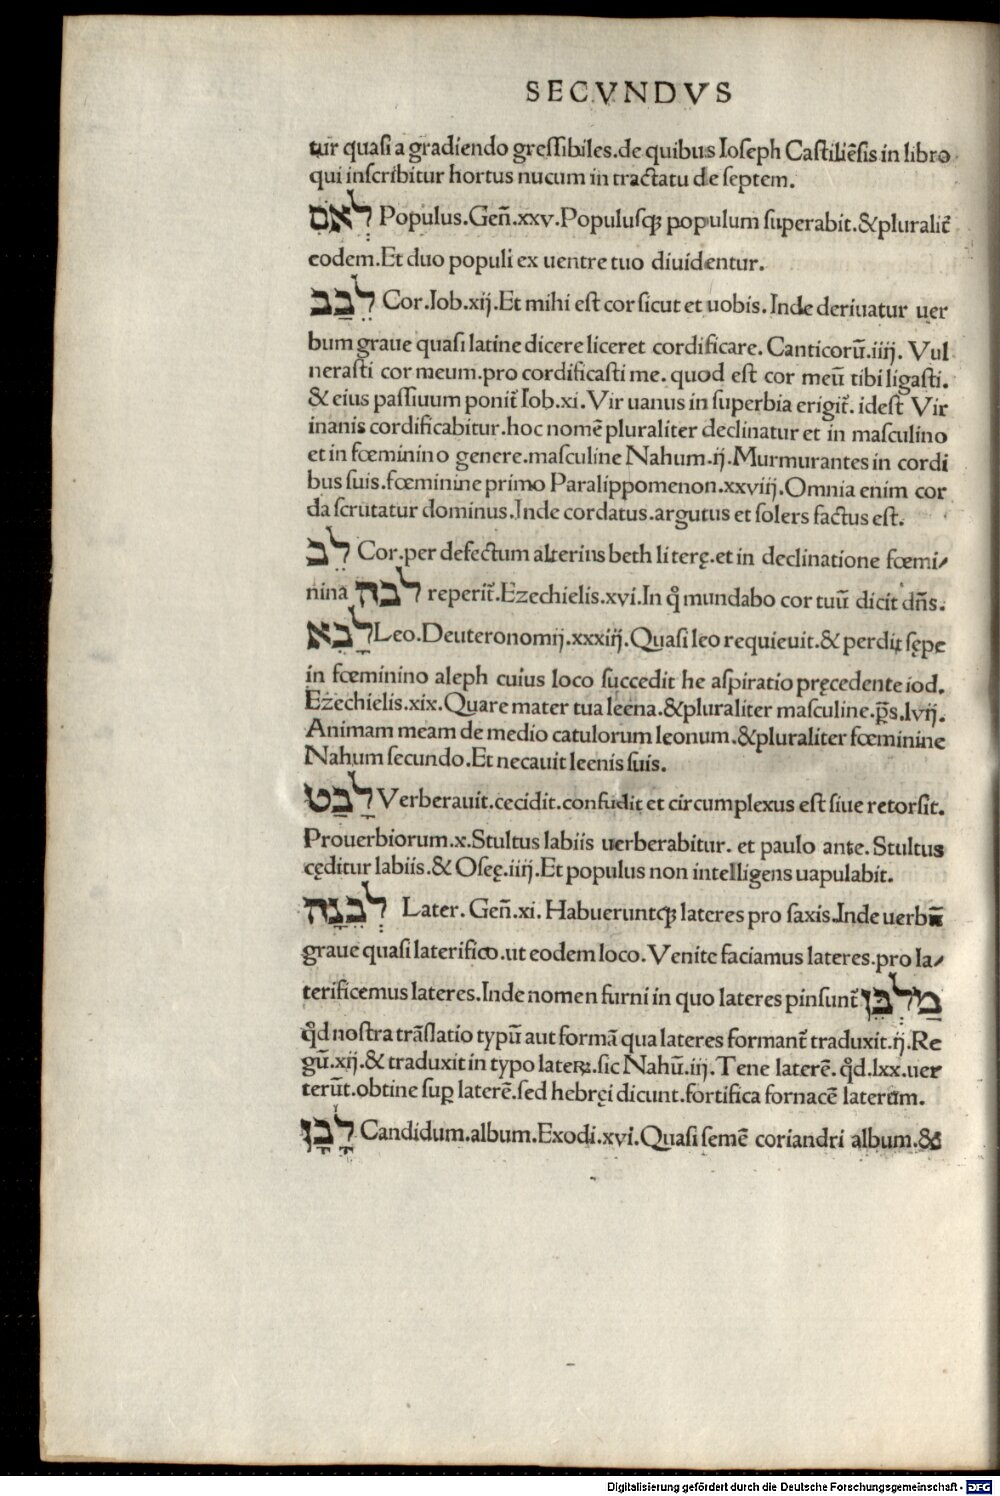 SECVNDVS
tur quasi a gradiendo gressibiles.de quibus Ioseph Castiliēsis in libro
qui inscribitur hortus nucum in tractatu de septem.
לְאֹם Populus.Geñ.xxv.Populusqꝫ populum superabit.&pluralit̃
eodem.Et duo populi ex uentre tuo diuidentur.
לֵבַב Cor.Iob.xij.Et mihi est cor sicut et uobis.Inde deriuatur uer
bum graue quasi latine dicere liceret cordificare.Canticorū.iiij.Vul
nerasti cor meum.pro cordificasti me.quod est cor meū tibi ligasti.
& eius passiuum ponit̃ Iob.xi.Vir uanus in superbia erigit̃.idest Vir
inanis cordificabitur.hoc nomē pluraliter declinatur et in masculino
et in fœminino genere.masculine Nahum.ij.Murmurantes in cordi
bus suis.fœminine primo Paralippomenon.xxviij.Omnia enim cor
da scrutatur dominus.Inde cordatus.argutus et solers factus est.
לֵב Cor.per defectum alterius beth literę.et in declinatione fœmi/
nina לבה reperit̃.Ezechielis.xvi.In q̊ mundabo cor tuū dicit dñs.
לָבִא Leo.Deuteronomij.xxxiij.Quasi leo requieuit.& perdit sępe
in fœminino aleph cuius loco succedit he aspiratio pręcedente iod.
Ezechielis.xix.Quare mater tua leena.&pluraliter masculine.p̄s.lvij.
Animam meam de medio catulorum leonum.&pluraliter fœminine
Nahum secundo.Et necauit leenis suis.
לָבַט Verberauit.cecidit.confudit et circumplexus est siue retorsit.
Prouerbiorum.x.Stultus labiis uerberabitur.et paulo ante.Stultus
cęditur labiis.& Oseę.iiij.Et populus non intelligens uapulabit.
לְבֵנָה Later.Geñ.xi.Habueruntqꝫ lateres pro saxis.Inde uerbū
graue quasi laterifico.ut eodem loco.Venite faciamus lateres.pro la/
terificemus lateres.Inde nomen furni in quo lateres pinsunt̃ מַלְבֵּן
q̊d nostra trāslatio typū aut formā qua lateres formant̃ traduxit.ij.Re
gū.xij.& traduxit in typo lateꝝ.sic Nahū.iij.Tene laterē.q̊d.lxx.uer
terūt.obtine suꝑ laterē.sed hebręi dicunt.fortifica fornacē laterum.
לָבָן Candidum.album.Exodi.xvi.Quasi semē coriandri album.&
Digitalisierung gefördert durch die Deutsche Forschungsgemeinschaft - DFG